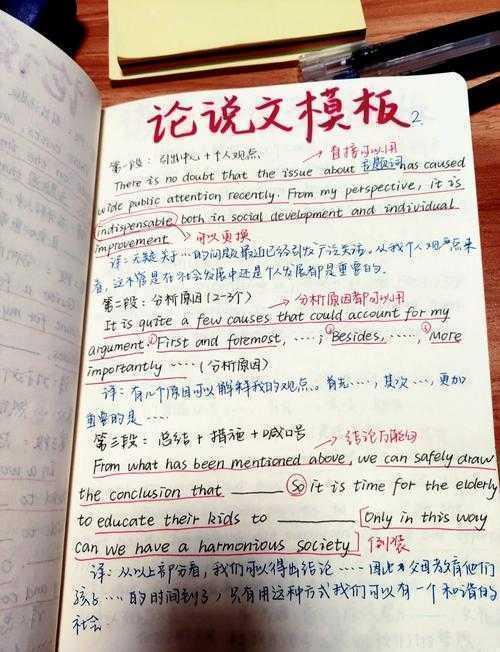 论说文模板 2.
第一段：引出中心+个人观点 → 直接可以用
There is no doubt that the issue about 主题词 has caused
wide public attention recently. From my perspective, it is
indispensable both in social development and individual
improvement → 可以更换
译：无疑关于…的问题最近已经引发广泛关注。从我个人观点来
看，这不管是在社会发展中还是个人发展都是重要的。
第二段：分析原因(2-3个) → 分析原因都可以用
It is quite a few causes that could account for my
argument. ① First and foremost, ……; ② Besides, ……, ③ More
importantly ……(分析原因)
译：有几个原因可以解释我的观点。首先…，其次…，更加
重要的是……
第三段：总结+措施+喊口号 → 结论万能句
From what has been mentioned above, we can safely draw
the conclusion that ______ So it is time for the elderly
to educate their kids to ______ [Only in this way
can we have a harmonious society] 倒装
译：从以上部分看，我们可以得出结论……因此父母教育他们
孩子…的时间到了，只有用这种方式我们可以有一个和谐的
社会